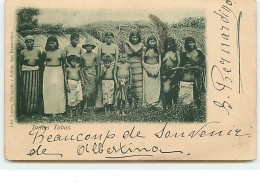 Indios Tobas.
S. Bernardino
Beaucoup de Souvenir
de Albertina